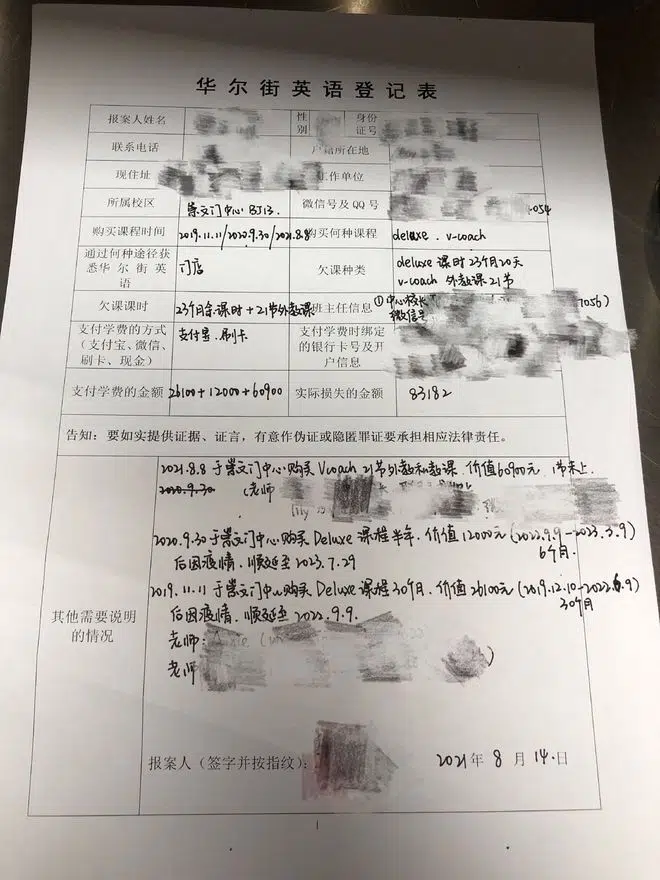 华尔街英语登记表
报案人姓名
性别
身份证号
联系电话
户籍所在地
现住址
工作单位
所属校区
崇文门中心 BJ13.
微信号及 QQ 号
054
购买课程时间
2019.11.11/2020.9.30/2021.8.8
购买何种课程
deluxe . v-coach
通过何种途径获
悉华尔街英
语
门店
欠课种类
deluxe 课时 23个月20天
v-coach 外教课 21节
欠课课时
23个月余课时+21节外教课
班主任信息
①中心校长
微信号
7056)
支付学费的方式
(支付宝、微信、
刷卡、现金)
支付宝.刷卡
支付学费时绑定
的银行卡号及开
户信息
支付学费的金额
26100+12000+60900
实际损失的金额
83182
告知:要如实提供证据、证言,有意作伪证或隐匿罪证要承担相应法律责任。
其他需要说明
的情况
2021.8.8 于崇文门中心购买 Vcoach 21节外教私教课.价值60900元,尚未上.
2020.9.30 (老师
2020.9.30 于崇文门中心购买 Deluxe 课程半年.价值12000元(2022.9.9-2023.3.9)
6个月.
后因疫情.顺延至2023.7.29
2019.11.11 于崇文门中心购买 Deluxe 课程30个月.价值26100元(2019.12.10-2022.6.9)
30个月
后因疫情.顺延至2022.9.9.
老师:
老师
)
报案人(签字并按指纹):
2021年 8 月 14.日
1